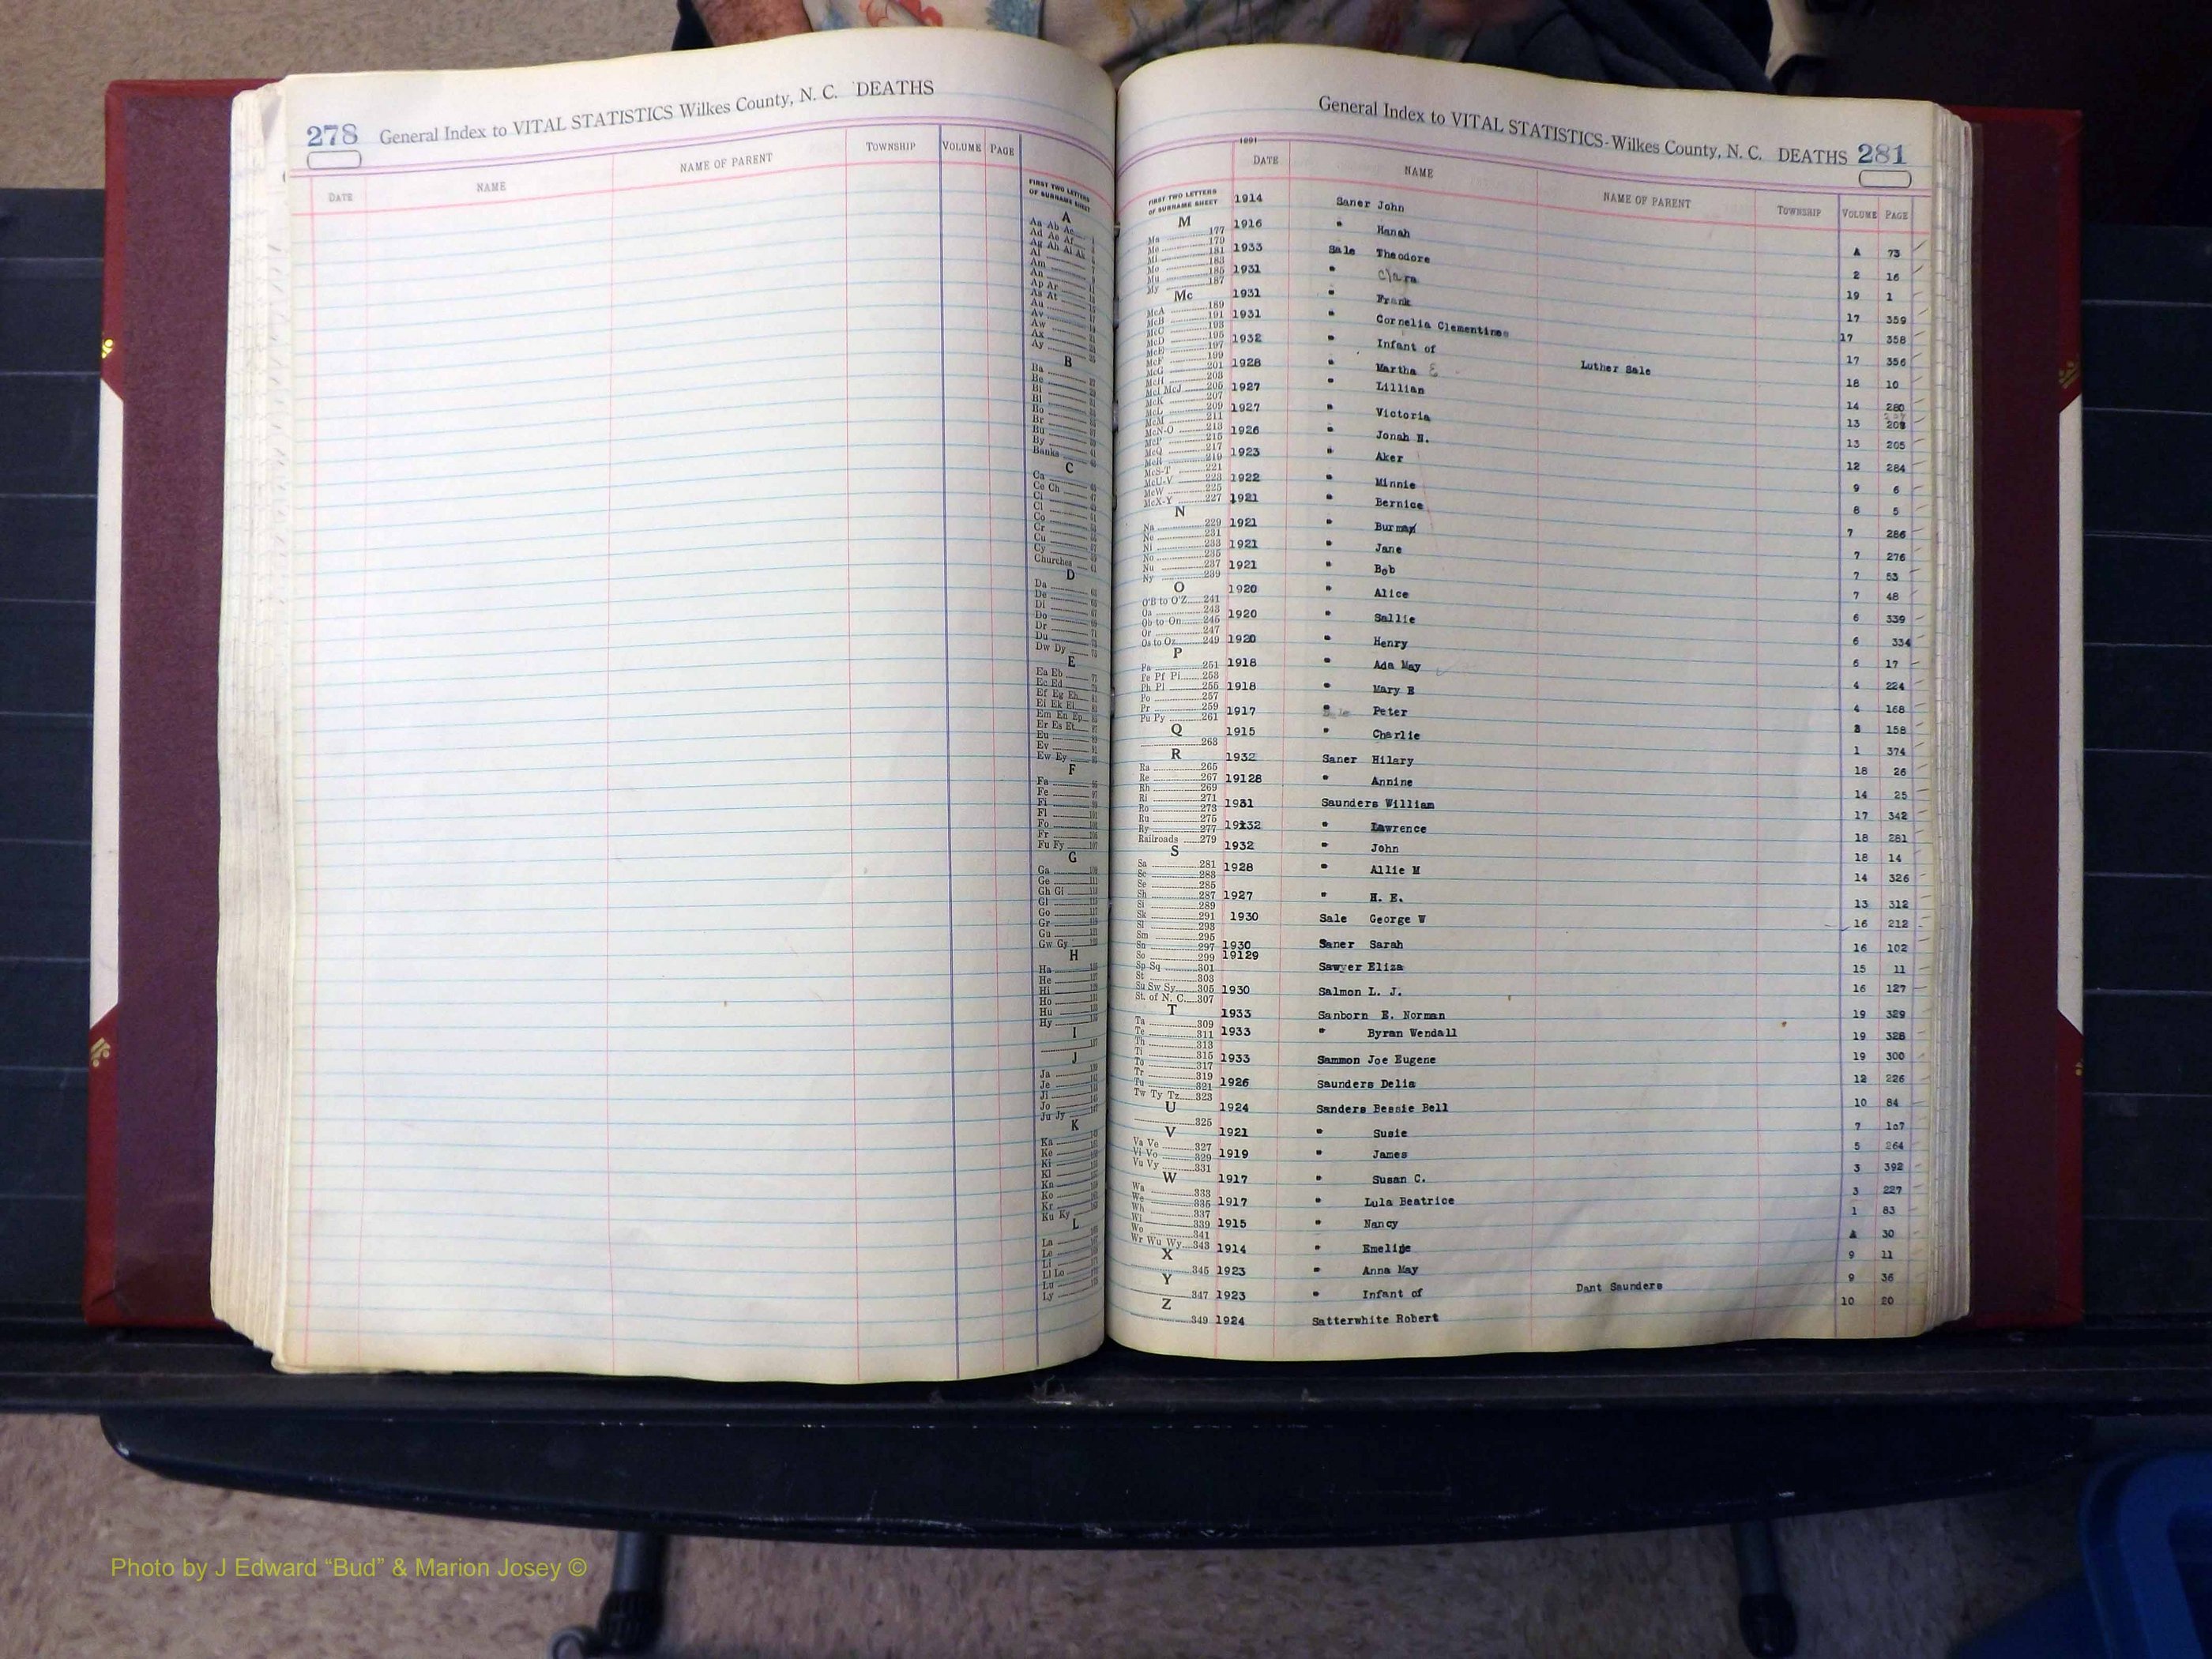 278 General Index to VITAL STATISTICS Wilkes County, N. C. DEATHS
DATE NAME NAME OF PARENT TOWNSHIP VOLUME PAGE
FIRST TWO LETTERS
OF SURNAME SHEET
A
Aa Ab Ac
Ad Ae Af
Ag Ah Ai Ak
Al
Am
An
Ap Ar
As At
Au
Av
Aw
Ax
Ay
B
Ba
Be
Bi
Bl
Bo
Br
Bu
By
Banks
C
Ca
Ce Ch
Ci
Cl
Co
Cr
Cu
Cy
Churches
D
Da
De
Di
Do
Dr
Du
Dw Dy
E
Ea Eb
Ec Ed
Ef Eg Eh
Ei Ek El
Em En Ep
Er Es Et
Eu
Ev
Ew Ey
F
Fa
Fe
Fi
Fl
Fo
Fr
Fu Fy
G
Ga
Ge
Gh Gi
Gl
Go
Gr
Gu
Gw Gy
H
Ha
He
Hi
Ho
Hu
Hy
I
J
Ja
Je
Ji
Jo
Ju Jy
K
Ka
Ke
Ki
Kl
Kn
Ko
Kr
Ku Ky
L
La
Le
Li
Ll Lo
Lu
Ly
General Index to VITAL STATISTICS-Wilkes County, N. C. DEATHS 281
DATE NAME NAME OF PARENT TOWNSHIP VOLUME PAGE
FIRST TWO LETTERS
OF SURNAME SHEET
M
Ma 177
Me 179
Mi 181
Mo 183
Mu 185
My 187
Mc
McA 189
McB 191
McC 193
McD 195
McE 197
McF 199
McG 201
McH 203
McI McJ 205
McK 207
McL 209
McM 211
McN-O 213
McP 215
McQ 217
McR 219
McS-T 221
McU-V 223
McW 225
McX-Y 227
N
Na 229
Ne 231
Ni 233
No 235
Nu 237
Ny 239
O
O'B to O'Z 241
Oa 243
Ob to On 245
Or 247
Os to Oz 249
P
Pa 251
Pe Pf Pi 253
Ph Pl 255
Po 257
Pr 259
Pu Py 261
Q
263
R
Ra 265
Re 267
Rh 269
Ri 271
Ro 273
Ru 275
Ry 277
Railroads 279
S
Sa 281
Sc 283
Se 285
Sh 287
Si 289
Sk 291
Sl 293
Sm 295
Sn 297
So 299
Sp Sq 301
St 303
Su Sw Sy 305
St. of N. C. 307
T
Ta 309
Te 311
Th 313
Ti 315
To 317
Tr 319
Tu 321
Tw Ty Tz 323
U
325
V
Va Ve 327
Vi Vo 329
Vu Vy 331
W
Wa 333
We 335
Wh 337
Wi 339
Wo 341
Wr Wu Wy 343
X
345
Y
347
Z
349
1914 Saner John A 73
1916 " Hanah 2 16
1933 Sale Theodore 19 1
1931 " Clara 17 359
1931 " Frank 17 358
1931 " Cornelia Clementine 17 356
1932 " Infant of Luther Sale 18 10
1928 " Martha E 14 280
1927 " Lillian 13 208
1927 " Victoria 13 205
1926 " Jonah N. 12 284
1923 " Aker 9 6
1922 " Minnie 8 5
1921 " Bernice 7 286
1921 " Burman 7 276
1921 " Jane 7 53
1921 " Bob 7 48
1920 " Alice 6 339
1920 " Sallie 6 334
1920 " Henry 6 17
1918 " Ada May 4 224
1918 " Mary E 4 168
1917 " Peter 3 158
1915 " Charlie 1 374
1932 Saner Hilary 18 26
19128 " Annine 14 25
1931 Saunders William 17 342
19132 " Lawrence 18 281
1932 " John 18 14
1928 " Allie M 14 326
1927 " H. E. 13 312
1930 Sale George W 16 212
1930 Saner Sarah 16 102
19129 Sawyer Eliza 15 11
1930 Salmon L. J. 16 127
1933 Sanborn E. Norman 19 329
1933 " Byran Wendall 19 328
1933 Sammon Joe Eugene 19 300
1926 Saunders Delia 12 226
1924 Sanders Bessie Bell 10 84
1921 " Susie 7 107
1919 " James 5 264
1917 " Susan C. 3 392
1917 " Lula Beatrice 3 227
1915 " Nancy 1 83
1914 " Emeline A 30
1923 " Anna May 9 11
1923 " Infant of Dant Saunders 9 36
1924 Satterwhite Robert 10 20
Photo by J Edward “Bud” & Marion Josey ©